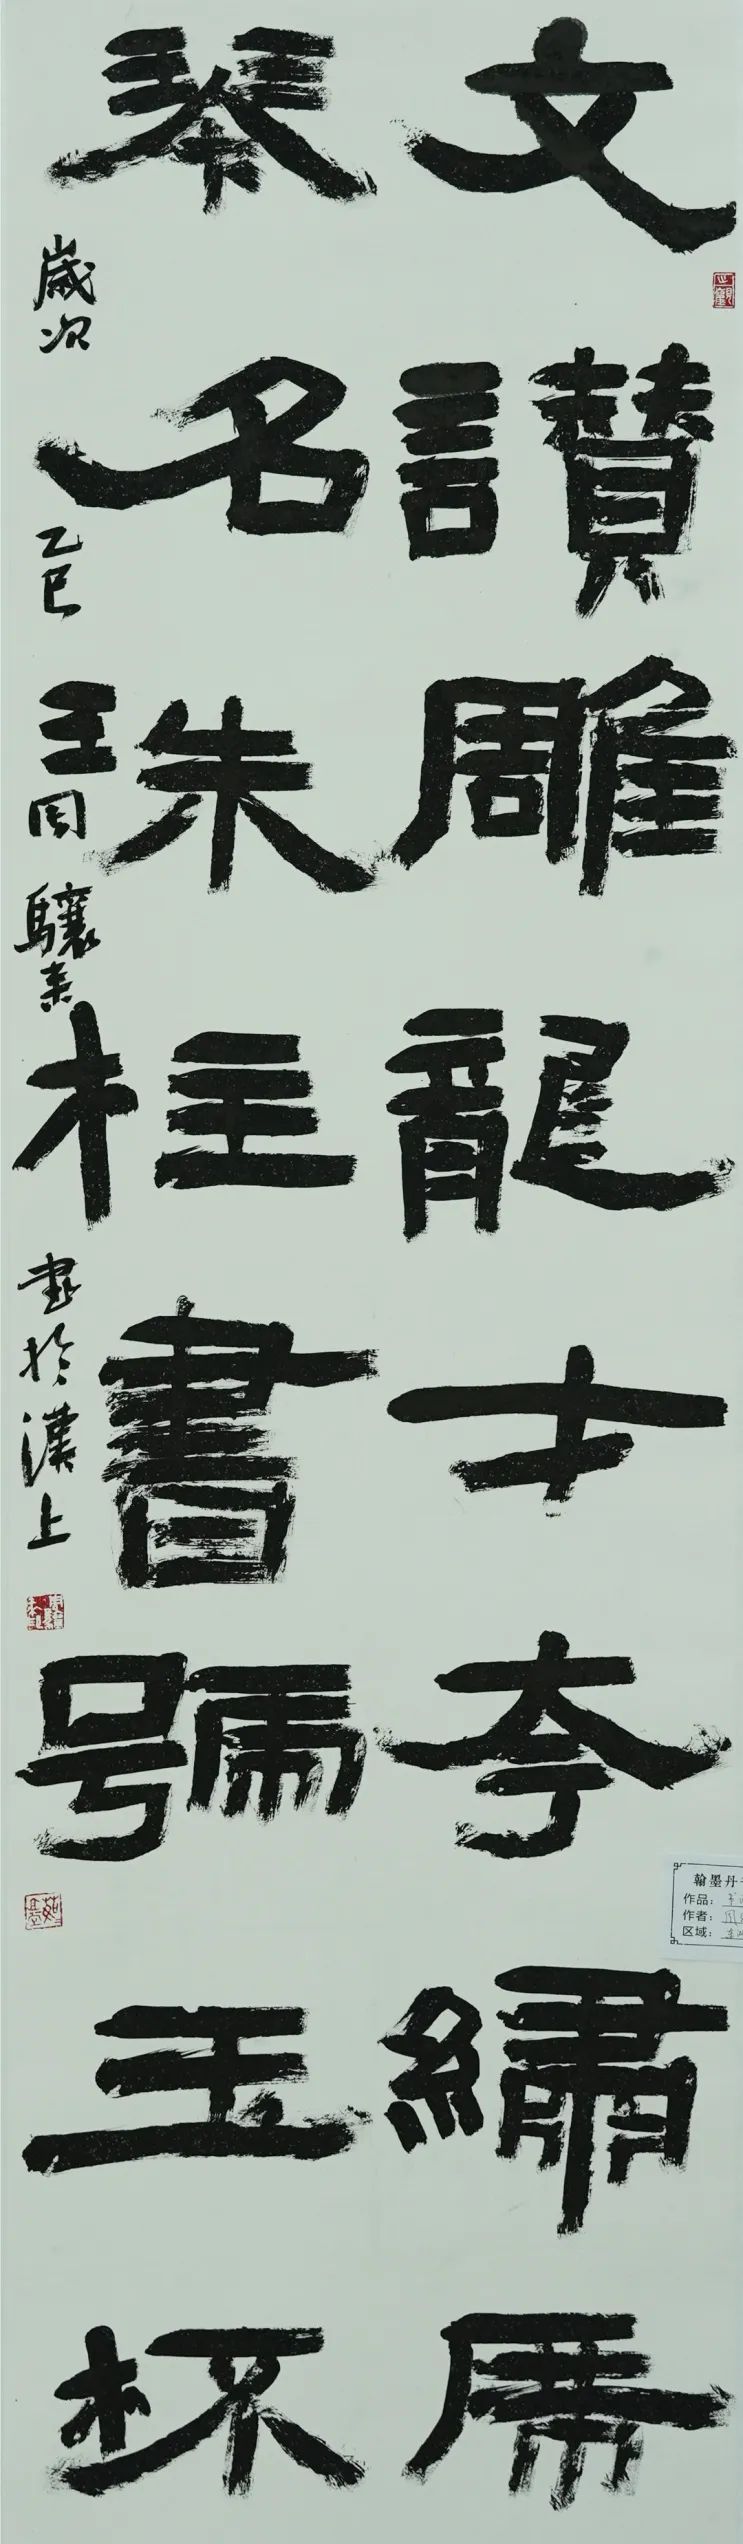 文讃雕龍才夸繡虎
琴名珠柱書號玉杯
歲次乙巳王同驤素書於漢上
翰墨丹
作品：
作者：
区域：